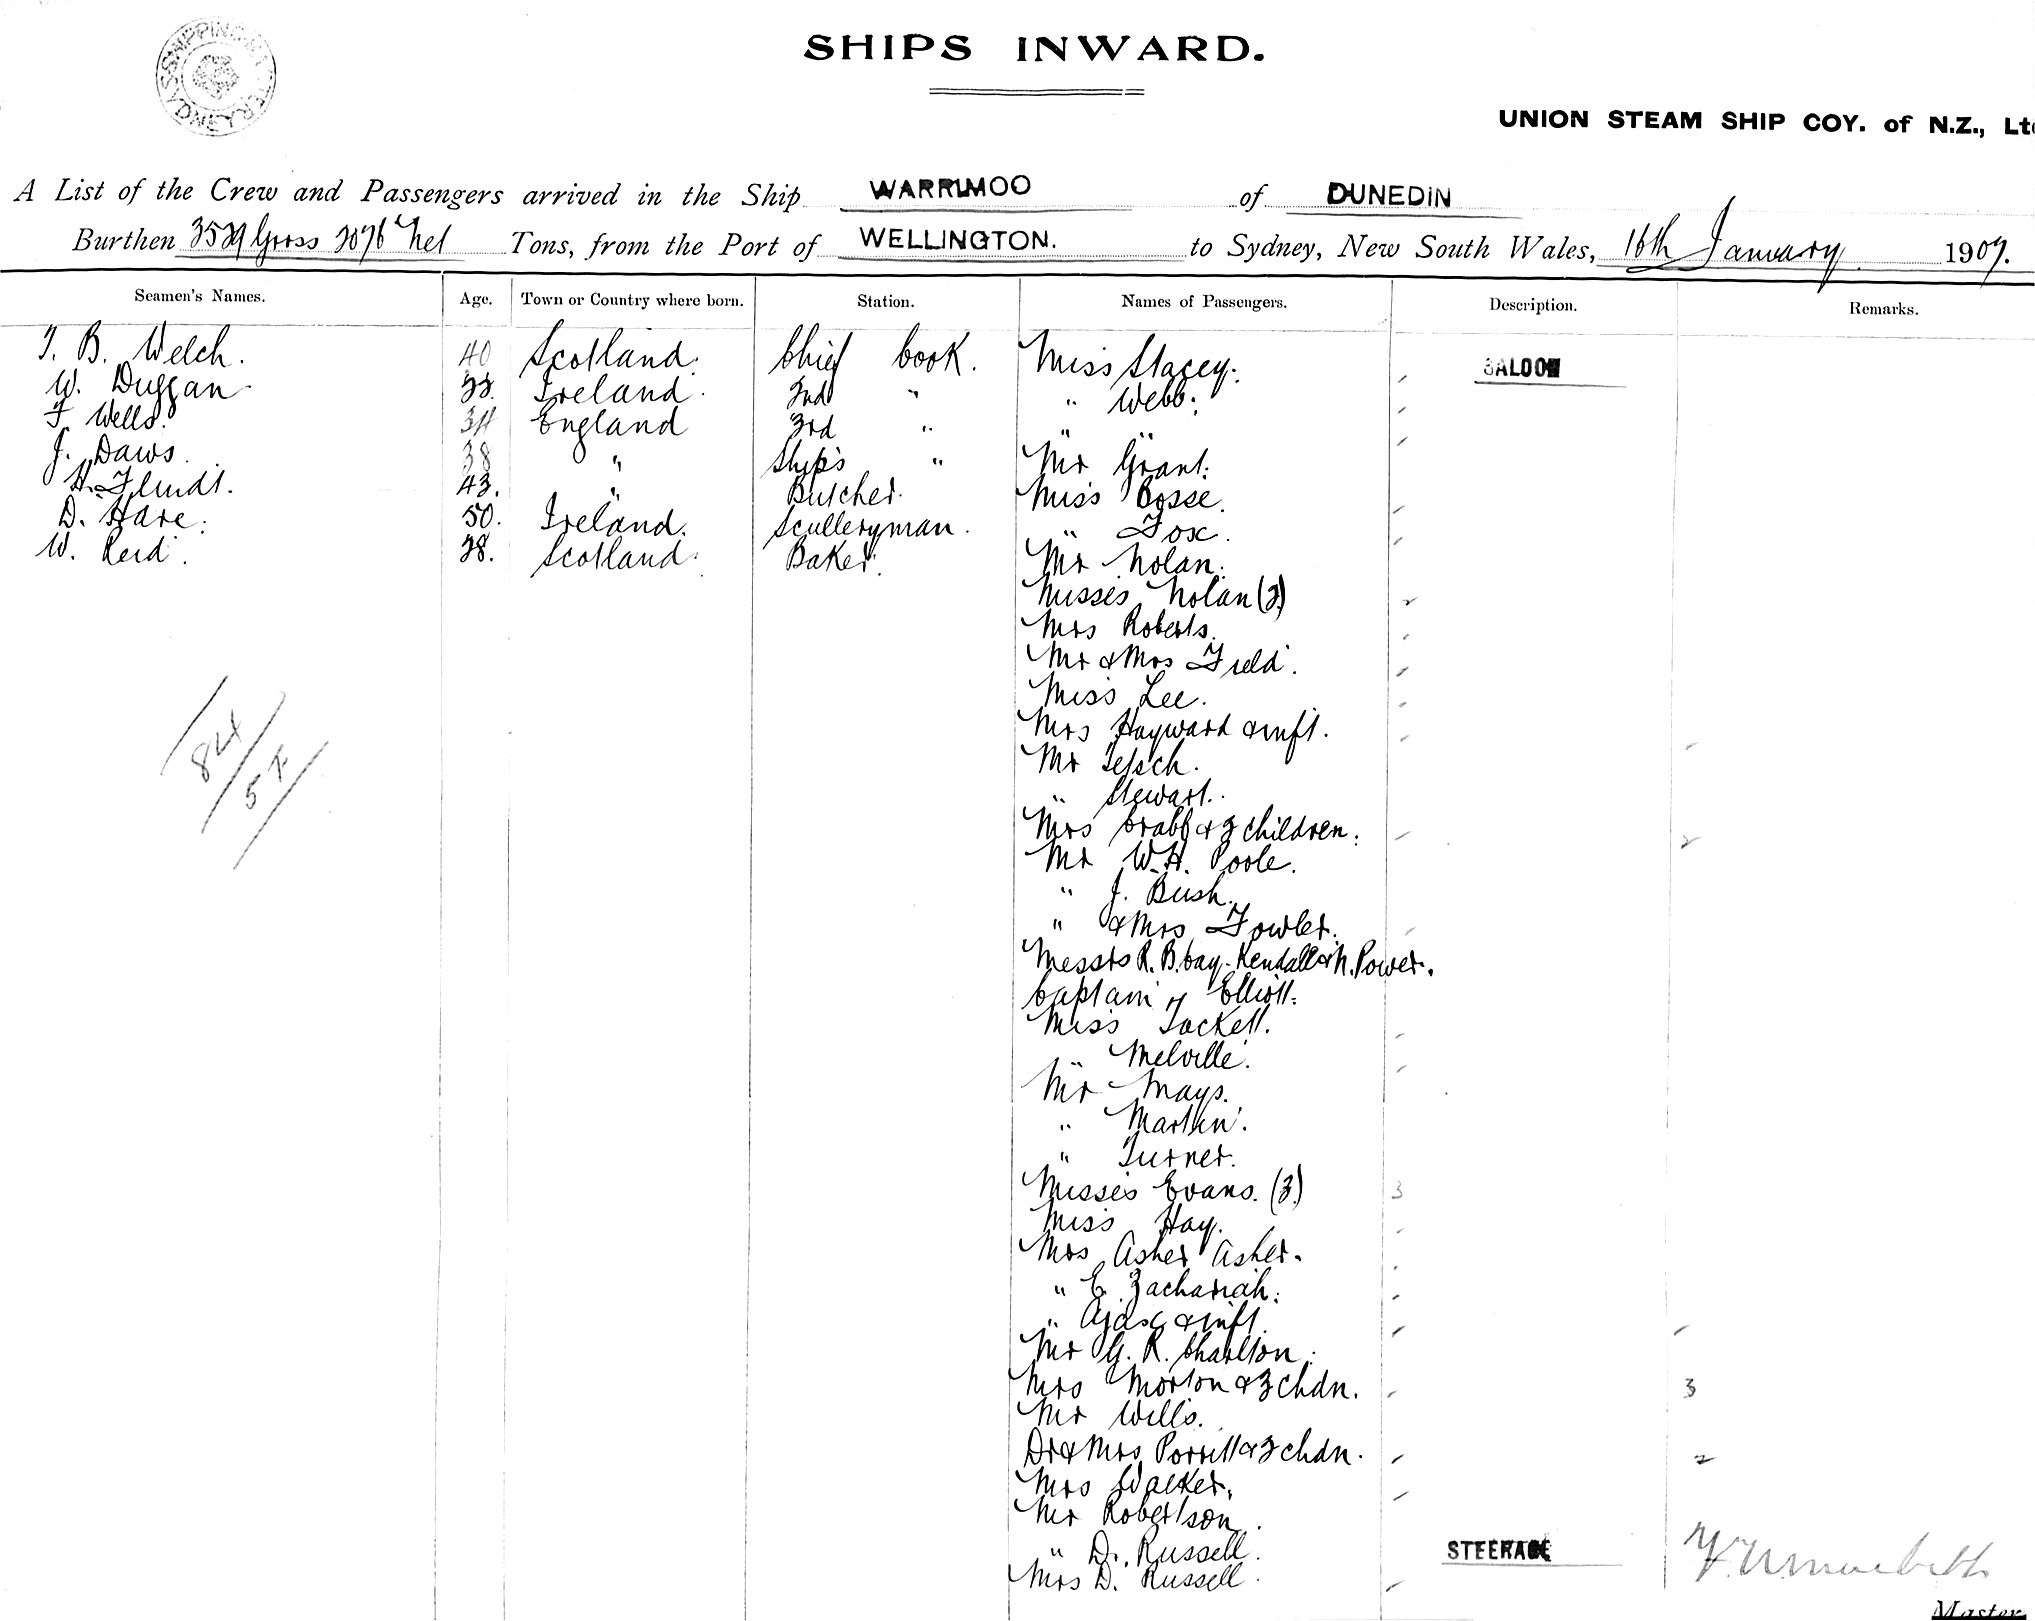 SHIPS INWARD.
UNION STEAM SHIP COY. of N.Z.,
A List of the Crew and Passengers arrived in the Ship WARRIMOO of DUNEDIN
Burthen 3529 Gross 2076 Net Tons, from the Port of WELLINGTON. to Sydney, New South Wales, 16th January 1907.
Seamen's Names. Age. Town or Country where born. Station. Names of Passengers. Description. Remarks.
T. B. Welch. 40 Scotland. Chief Cook. Miss Stacey. SALOON
W. Duggan 33. Ireland. 2nd " " Webb.
F. Wells. 34 England 3rd " " "
J. Daws. 38 " Ship's " Mr Grant.
H. 43. " Butcher. Miss Bosse.
D. Hare. 50. Ireland. Sculleryman. " Fox.
W. Reid. 38. Scotland. Baker. Mr Nolan.
Misses Nolan (2)
Mrs Roberts.
Mr & Mrs Field.
Miss Lee.
Mrs Hayward & inft.
Mr
" Stewart.
Mrs Crabb & 2 children. 2
Mr W. H. Poole.
" J. Bush.
" & Mrs Fowler.
Messrs R. B. Cay. Kendall & N. Power.
Captain Elliott.
Miss Tockell.
" Melville.
Mr Mays.
" Martin.
" Turner.
Misses Evans. (3) 3
Miss Hay.
Mrs Asher Asher.
" E. Zachariah.
" & inft.
Mr G. R. Charlton.
Mrs Morton & 3 chdn. 3
Mr Wills.
Dr & Mrs Porritt & 2 chdn. 2
Mrs Walker.
Mr Robertson.
" D. Russell. STEERAGE
Mrs D. Russell.
Master
84